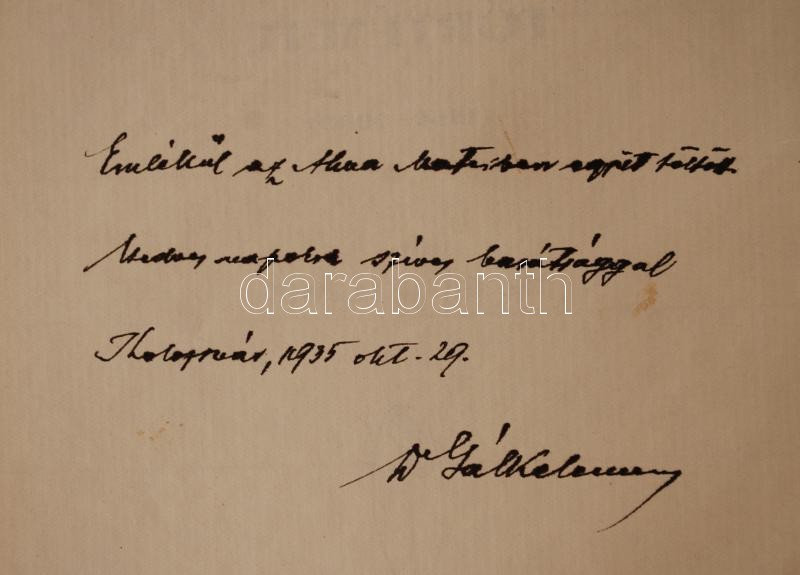 Emlékül az Alma Materben együtt töltött
kedves napokra szíves barátsággal
darabanth
Kolozsvár, 1935 okt. 29.
Dr Gál Kelemen